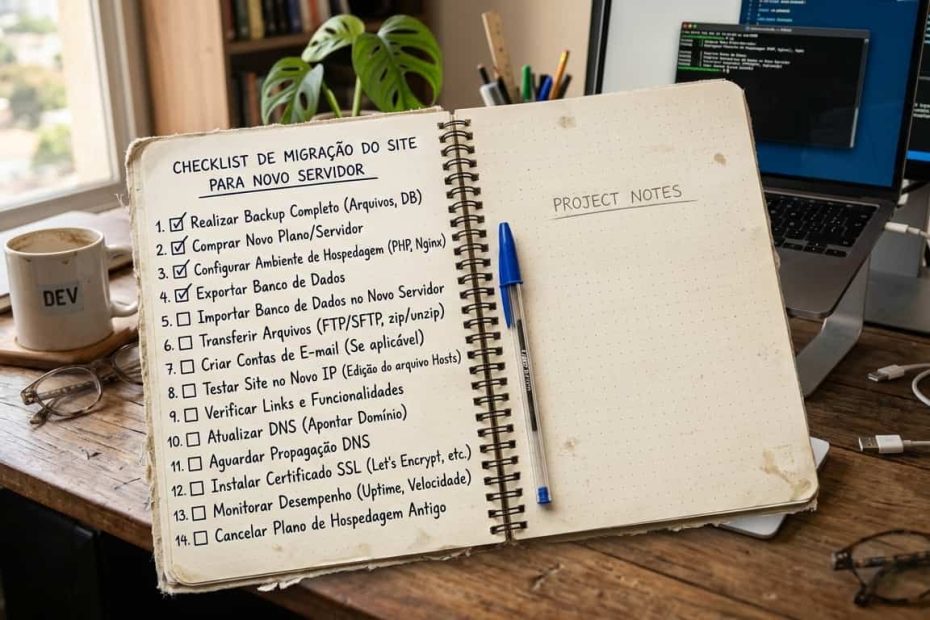 CHECKLIST DE MIGRAÇÃO DO SITE
PARA NOVO SERVIDOR
1. ☑ Realizar Backup Completo (Arquivos, DB)
2. ☑ Comprar Novo Plano/Servidor
3. ☑ Configurar Ambiente de Hospedagem (PHP, Nginx)
4. ☑ Exportar Banco de Dados
5. ☐ Importar Banco de Dados no Novo Servidor
6. ☐ Transferir Arquivos (FTP/SFTP, zip/unzip)
7. ☐ Criar Contas de E-mail (Se aplicável)
8. ☐ Testar Site no Novo IP (Edição do arquivo Hosts)
9. ☐ Verificar Links e Funcionalidades
10. ☐ Atualizar DNS (Apontar Domínio)
11. ☐ Aguardar Propagação DNS
12. ☐ Instalar Certificado SSL (Let's Encrypt, etc.)
13. ☐ Monitorar Desempenho (Uptime, Velocidade)
14. ☐ Cancelar Plano de Hospedagem Antigo
PROJECT NOTES
DEV